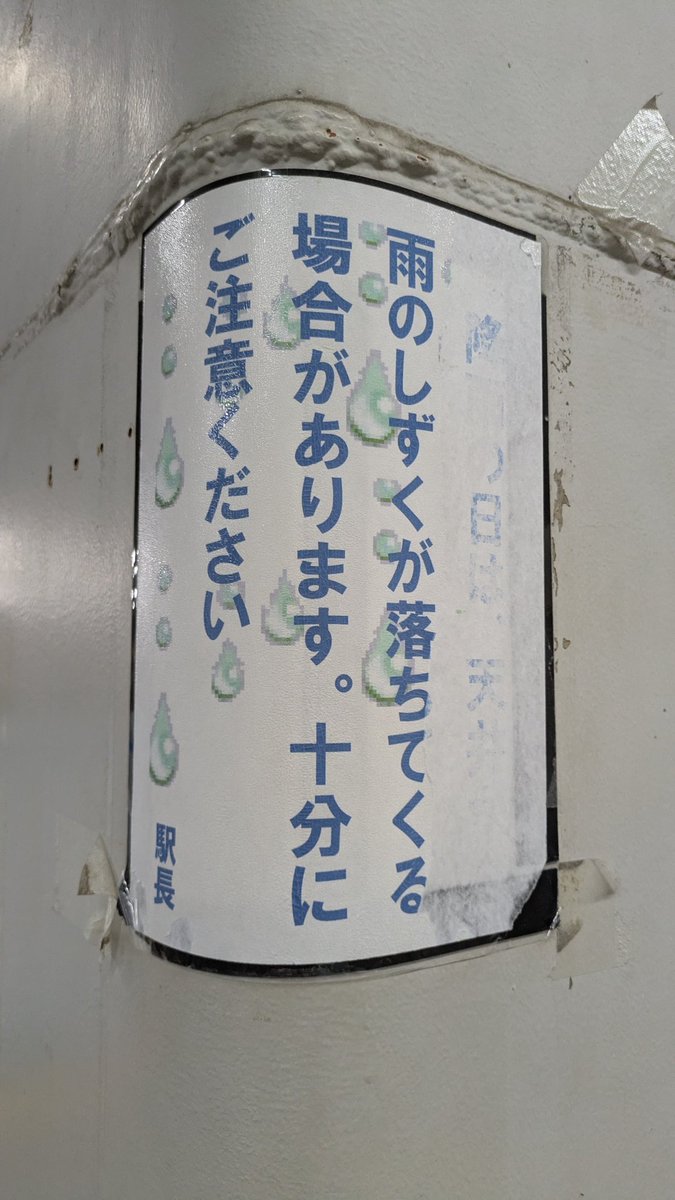 日は、天
雨のしずくが落ちてくる
場合があります。十分に
ご注意ください
駅長